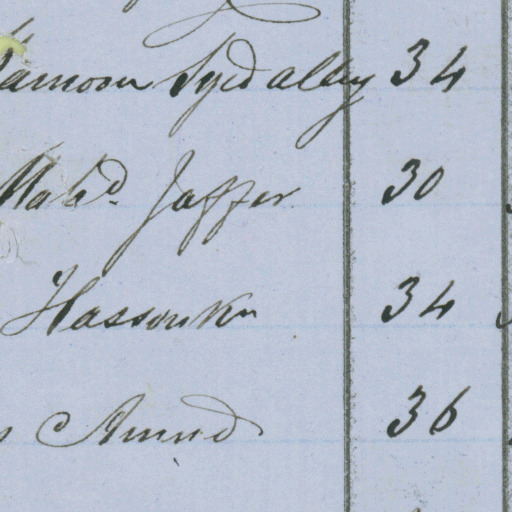 Syed alley 34
Mahd. Jaffer 30
Hassonkn 34
Amud 36